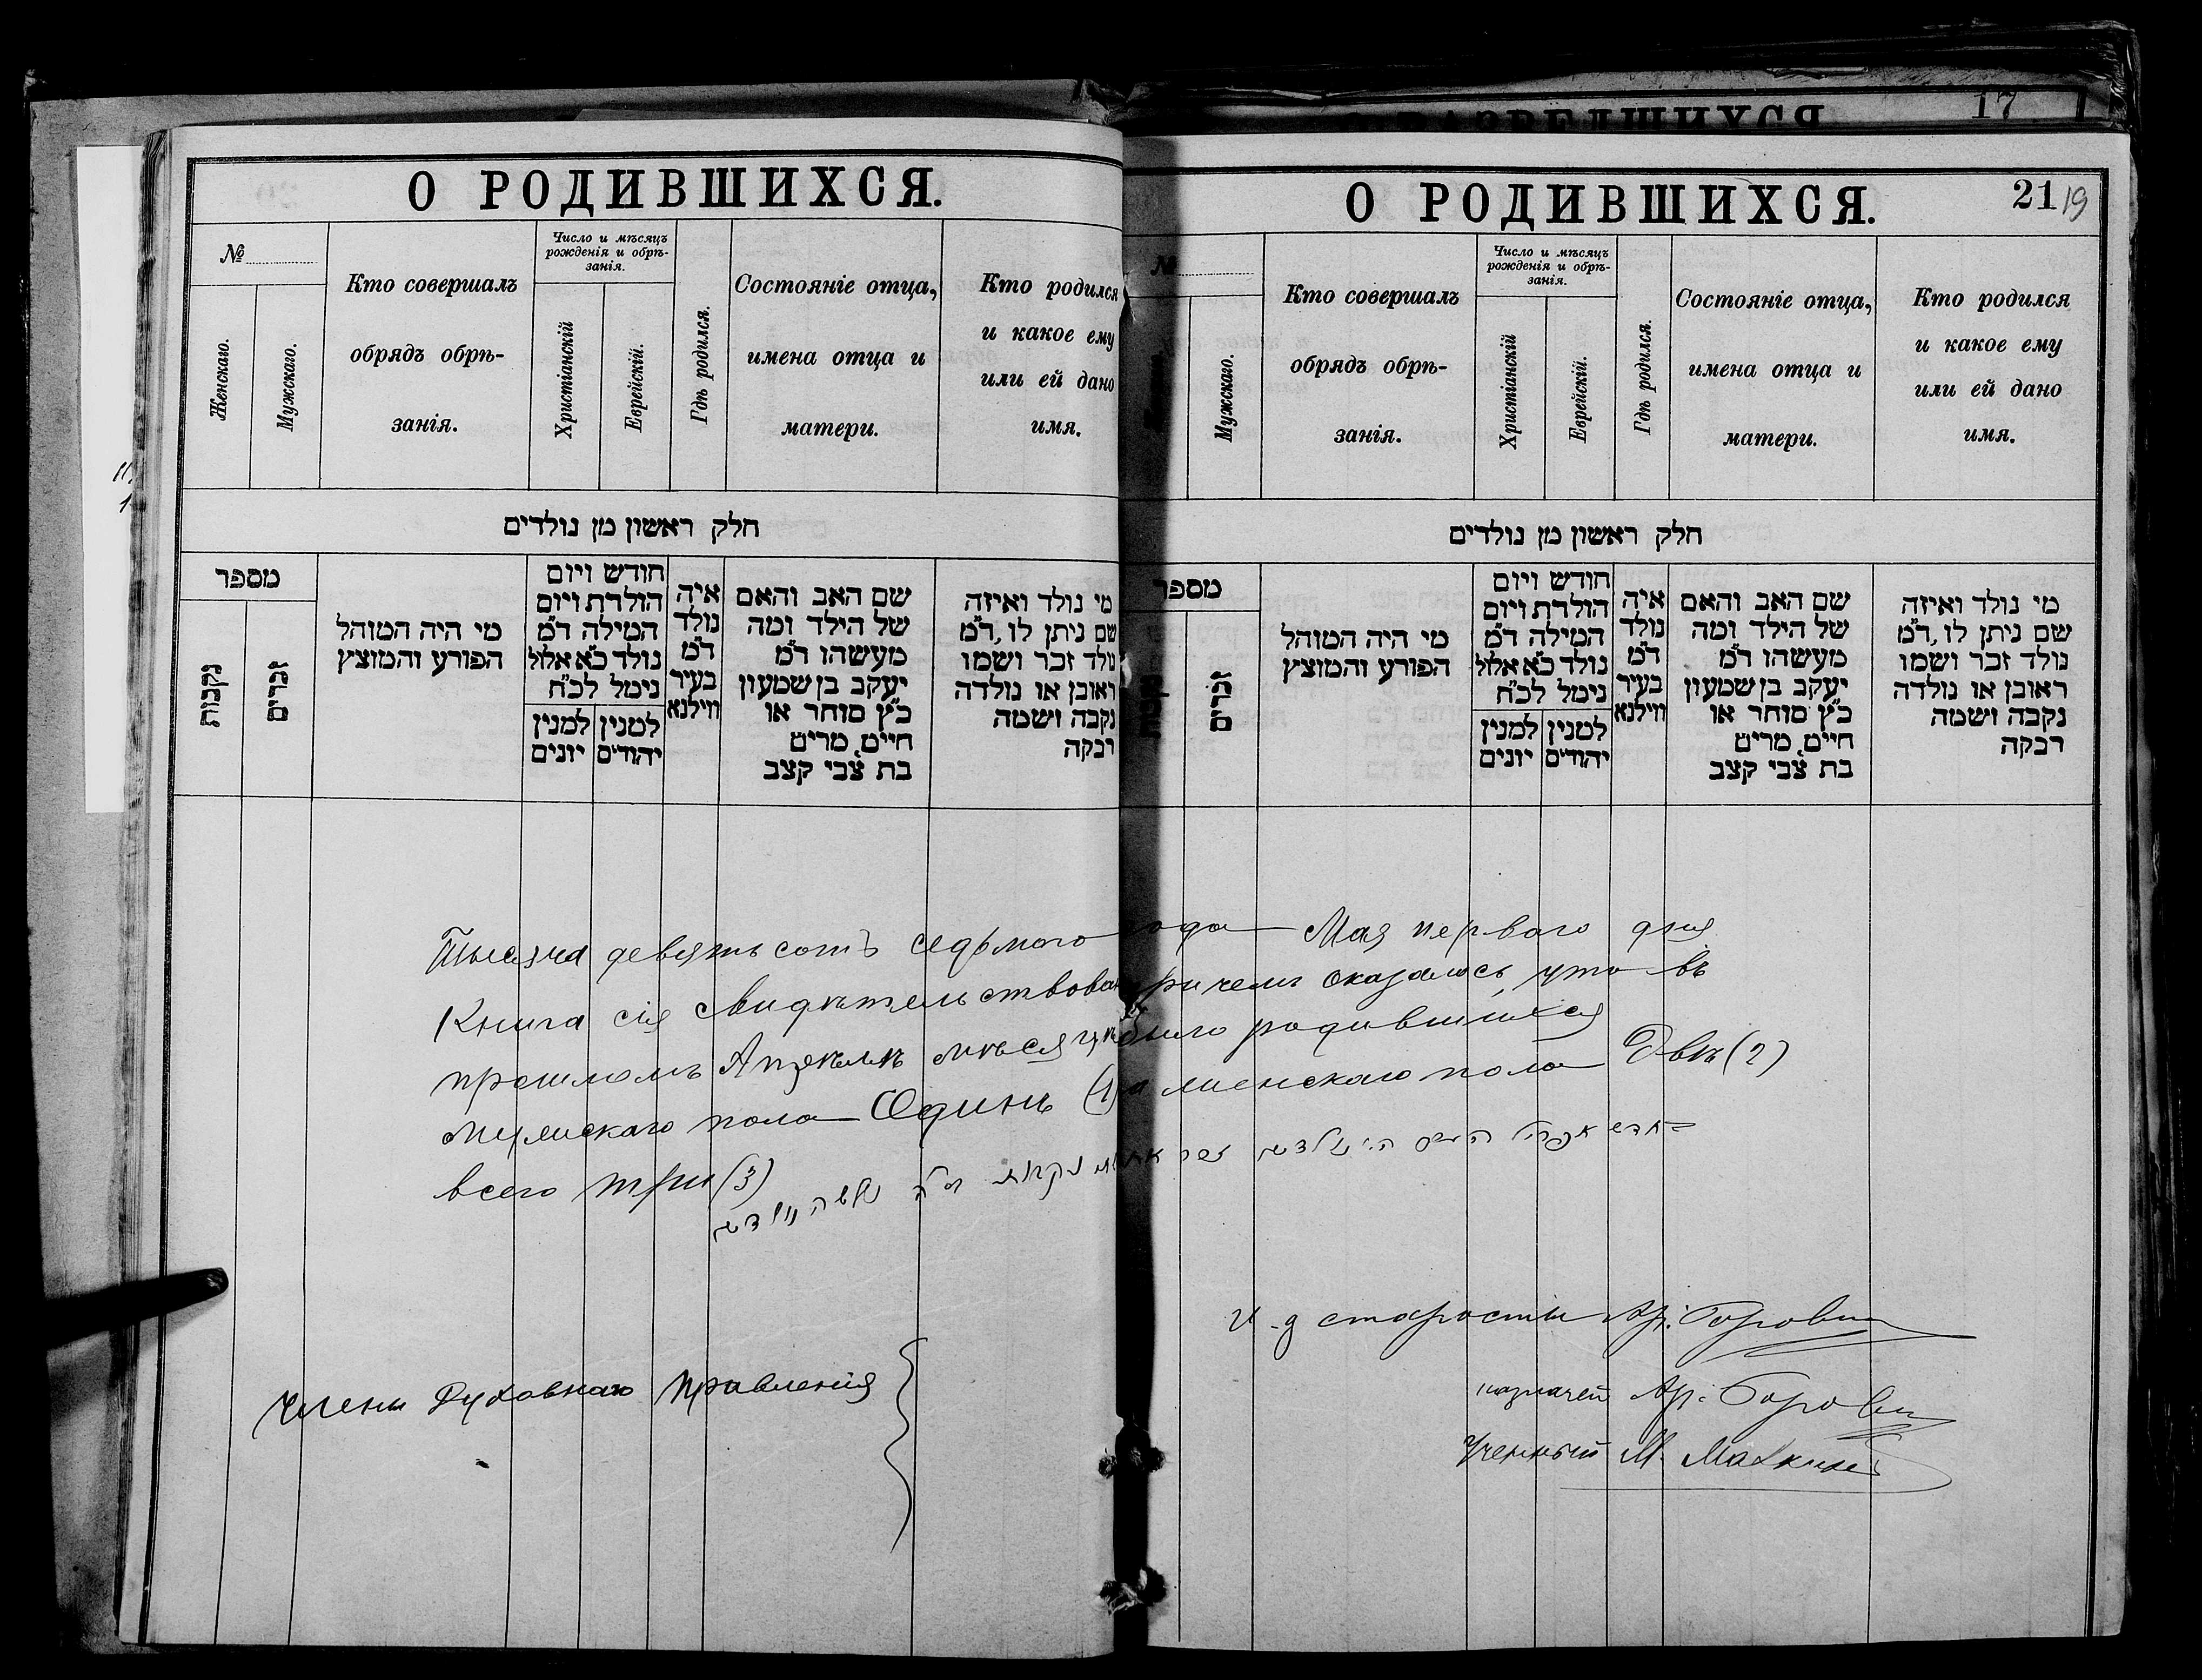 17
О РОДИВШИХСЯ.
№
Женскаго.
Мужскаго.
Кто совершалъ
обрядъ обрѣ-
занія.
Число и мѣсяцъ
рожденія и обрѣ-
занія.
Христіанскій
Еврейскій.
Гдѣ родился.
Состояніе отца,
имена отца и
матери.
Кто родился
и какое ему
или ей дано
имя.
חלק ראשון מן נולדים
מספר
נקבות
זכרים
מי היה המוהל
הפורע והמוצץ
חודש ויום
הולדת ויום
המילה ד״מ
נולד כ״א אלול
נימל לכ״ח
למנין יהודים
למנין יונים
איה
נולד
ד״מ
בעיר
ווילנא
שם האב והאם
של הילד ומה
מעשהו ד״מ
יעקב בן שמעון
כ״ץ סוחר או
חייט, מרים
בת צבי קצב
מי נולד ואיזה
שם ניתן לו, ד״מ
נולד זכר ושמו
ראובן או נולדה
נקבה ושמה
רבקה
О РОДИВШИХСЯ.
21 19
№
Мужскаго.
Кто совершалъ
обрядъ обрѣ-
занія.
Число и мѣсяцъ
рожденія и обрѣ-
занія.
Христіанскій
Еврейскій.
Гдѣ родился.
Состояніе отца,
имена отца и
матери.
Кто родился
и какое ему
или ей дано
имя.
חלק ראשון מן נולדים
מספר
זכרים
מי היה המוהל
הפורע והמוצץ
חודש ויום
הולדת ויום
המילה ד״מ
נולד כ״א אלול
נימל לכ״ח
למנין יהודים
למנין יונים
איה
נולד
ד״מ
בעיר
ווילנא
שם האב והאם
של הילד ומה
מעשהו ד״מ
יעקב בן שמעון
כ״ץ סוחר או
חייט, מרים
בת צבי קצב
מי נולד ואיזה
שם ניתן לו, ד״מ
נולד זכר ושמו
ראובן או נולדה
נקבה ושמה
רבקה
Тысяча девятьсотъ седьмого года Мая перваго дня
Книга сія свидѣтельствована причемъ оказалось, что въ
прошломъ Апрѣлѣ мѣсяцѣ было родившихся
мужскаго пола Одинъ (1) а женскаго пола Двѣ (2)
всего три (3)
И. д старосты Ар. Борови
Члены Духовнаго Правленія
казначей Ар. Борови
Ученный М. Махкинъ